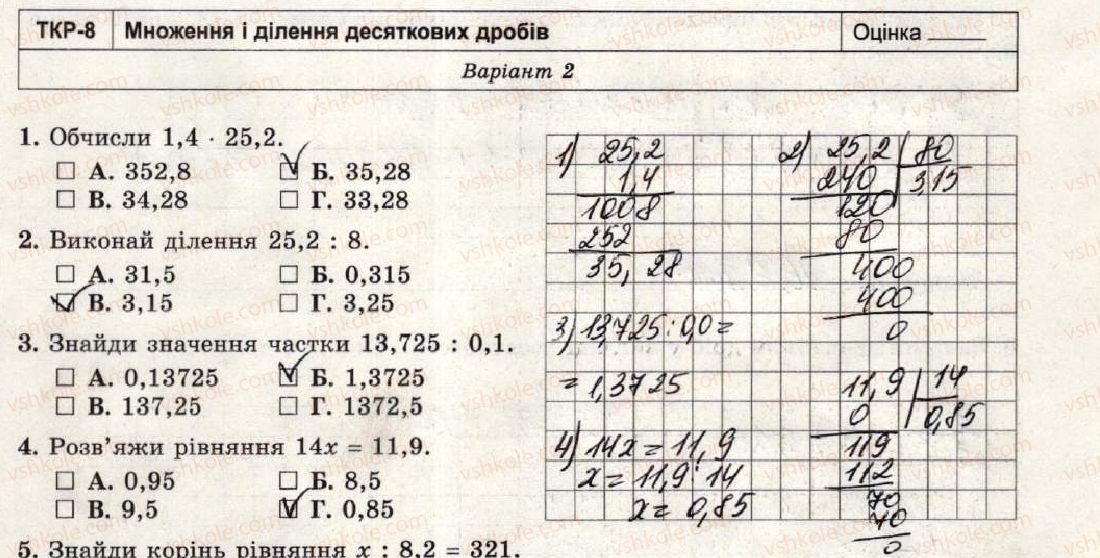 ТКР-8 Множення і ділення десяткових дробів Оцінка
Варіант 2
1. Обчисли 1,4 · 25,2.
А. 352,8 Б. 35,28
В. 34,28 Г. 33,28
2. Виконай ділення 25,2 : 8.
А. 31,5 Б. 0,315
В. 3,15 Г. 3,25
3. Знайди значення частки 13,725 : 0,1.
А. 0,13725 Б. 1,3725
В. 137,25 Г. 1372,5
4. Розв'яжи рівняння 14x = 11,9.
А. 0,95 Б. 8,5
В. 9,5 Г. 0,85
5. Знайди корінь рівняння x : 8,2 = 321.
1) 25,2
1,4
1008
252
35,28
2) 25,2 80
240 3,15
120
80
400
400
0
3) 13,725 : 0,0 =
= 1,3725
4) 14x = 11,9
x = 11,9 : 14
x = 0,85
11,9 14
0 0,85
119
112
70
70
0
vshkole.com